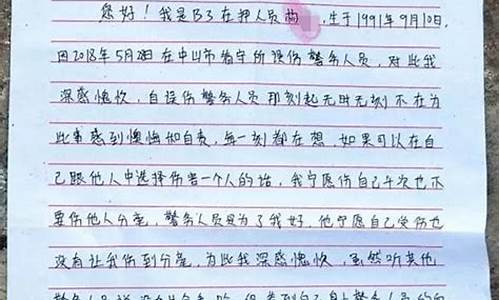 您好！我是B3在押人员曲 ，生于1991年9月10日.
因2018年5月28日在中山市看守所误伤警务人员，对此我
深感愧疚，自误伤警务人员那刻起无时无刻不在为
此事感到懊悔和自责，每一刻都在想，如果可以在自
己跟他人中选择伤害一个人的话，我宁愿伤自己千次也不
要伤他人分毫，警务人员是为了我好，他宁愿自己受伤也
没有让我伤到分毫，为此我深感愧疚，虽然听其他
警务人员说没有什么 ，但 到自己 警务人员的